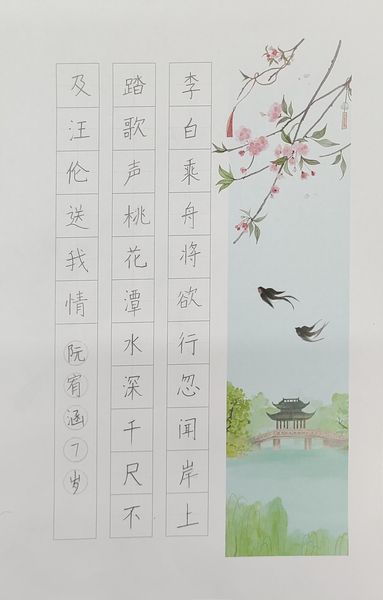 李白乘舟将欲行忽闻岸上
踏歌声桃花潭水深千尺不
及汪伦送我情阮宥涵7岁